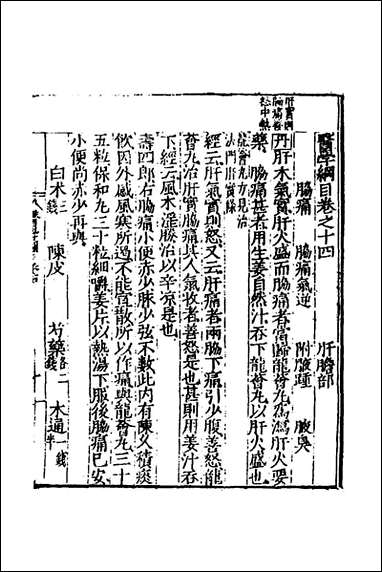 醫學綱目卷之十四　肝膽部
脇痛　脇痛氣逆　附腋腫　腋臭
丹肝木氣實肝火盛而脇痛者當歸龍薈丸為瀉肝火要
藥　脇痛甚者用生姜自然汁吞下龍薈丸以肝火盛也
經云肝氣實則怒又云肝痛者兩脇下痛引少腹善怒龍
薈丸治肝實脇痛其人氣收者善怒是也甚則用姜汁吞
下經云風木淫勝治以辛凉是也
壽四郎右脇痛小便赤少脉少弦不數此內有陳久積痰
飲因外感風寒所遏不能宣散所以作痛與龍薈丸三十
五粒保和丸三十粒細嚼姜片以熱湯下服後脇痛已安
小便尚赤少再與
白朮三錢　陳皮　芍藥各二錢　木通一錢半